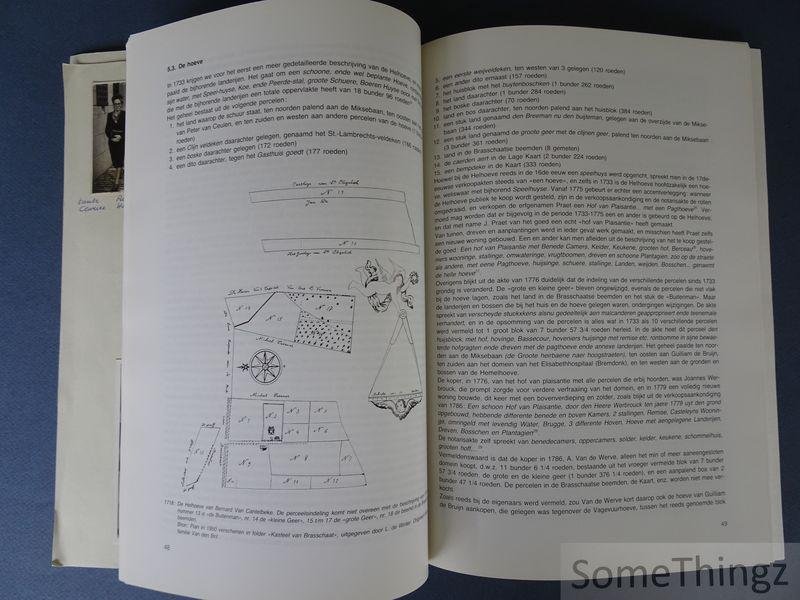 5.3. De hoeve
In 1733 krijgen we voor het eerst een meer gedetailleerde beschrijving van de Helhoeve, en
paald de bijhorende landerijen. Het gaat om een schoone, ende wel beplante Hoeve,
sijn water, met Speer-huyse, Koe, ende Peerde-stal, groote Schuere, Boeren Huyse
die met de bijhorende landerijen een totale oppervlakte heeft van 18 bunder 96 roeden
Het geheel bestaat uit de volgende percelen:
1. het land waarop de schuur staat, ten noorden palend aan de Miksebaan, ten oosten aan
van Peter van Ceulen, en ten zuiden en westen aan andere percelen van de hoeve (1
roeden)
2. een Clijn veldeken daarachter gelegen, genaamd het St.-Lambrechts-veldeken (166
3. een boske daarachter gelegen (172 roeden)
4. een dito daarachter, tegen het Gasthuis goedt (177 roeden)
N° 19
N° 18
N° 14
N° 17
Michiel
N° 1
N° 2
N° 3
N° 4
N° 5
N° 6
N° 9
N° 11
N° 12
1718: De Helhoeve van Bernard Van Cantelbeke. De perceelsindeling komt niet overeen met de beschrijving van
nummer 13 is «de Buiteman», nr. 14 de «kleine Geer», 15 t/m 17 de «grote Geer», nr. 18 de beemd in de
beemden.
Bron: Plan in 1950 verschenen in folder «Kasteel van Brasschaat», uitgegeven door L. de Winter.
familie Van den Bol.
48
5. een eerste weijveldeken, ten westen van 3 gelegen (120 roeden)
6. een ander dito ernaast (157 roeden)
7. het huisblok met het buytenboschen (1 bunder 262 roeden)
8. het land daarachter (1 bunder 284 roeden)
9. het boske daarachter (70 roeden)
10. land en bos daarachter, ten noorden palend aan het huisblok (384 roeden)
11. een stuk land genaamd den Breeman nu den buijteman, gelegen aan de overzijde van de Mikse-
baan (344 roeden)
12. een stuk land genaamd de groote geer met de clijnen geer, palend ten noorden aan de Miksebaan
(3 bunder 361 roeden)
13. land in de Brasschaatse beemden (8 gemeten)
14. de caerden aert in de Lage Kaart (2 bunder 224 roeden)
15. een bempdeke in de Kaart (333 roeden)
Hoewel bij de Helhoeve reeds in de 16de eeuw een speelhuys werd opgericht, spreekt men in de 17de-
eeuwse verkoopakten steeds van «een hoeve», en zelfs in 1733 is de Helhoeve hoofdzakelijk een hoe-
ve, weliswaar met bijhorend Speelhuyse. Vanaf 1775 gebeurt er echter een accentverlegging: wanneer
de Helhoeve publiek te koop wordt gesteld, zijn in de verkoopsaankondiging en de notarisakte de rollen
omgedraaid, en verkopen de erfgenamen Praet een Hof van Plaisantie... met een Pagthoeve. Ver-
moed mag worden dat er bijgevolg in de periode 1733-1775 een en ander is gebeurd op de Helhoeve,
en dat met name J. Praet van het goed een echt «hof van Plaisantie» heeft gemaakt.
Van tuinen, dreven en aanplantingen werd in ieder geval werk gemaakt, en misschien heeft Praet zelfs
een nieuwe woning gebouwd. Een en ander kan men afleiden uit de beschrijving van het te koop gestel-
de goed: Een hof van Plaisantie met Benede Camers, Kelder, Keukene, Grooten hof, Berceau, hove-
niers wooninge, stallinge, omwateringe, vrugtboomen, dreven en schoone Plantagien, zoo op de straete
als andere, met eene Pagthoeve, huijsinge, schuere, stallinge, Landen, weijden, Bosschen... genaemt
de helle hoeve.
Overigens blijkt uit de akte van 1776 duidelijk dat de indeling van de verschillende percelen sinds 1733
grondig is veranderd. De «grote en kleine geer» bleven ongewijzigd, evenals de percelen die niet vlak
bij de hoeve lagen, zoals het land in de Brasschaatse beemden en het stuk de «Buiteman». Maar
de landerijen en bossen die bij het huis en de hoeve gelegen waren, ondergingen wijzigingen. De akte
spreekt van verscheyde stuckxkens alsnu gedeeltelijk aen malcanderen geapproprieert ende teenemale
verhandert, en in de opsomming van de percelen is alles wat in 1733 als 10 verschillende percelen
werd vermeld tot 1 groot blok van 7 bunder 57 3/4 roeden herleid. In de akte heet dit perceel den
huijsblock, met hof, hovinge, Bassecour, hoveniers huijsinge met remise etc. rontsomme in sijne bewae-
terde hofgragten ende dreven met de pagthoeve ende annexe landerijen. Het geheel paalde ten noor-
den aan de Miksebaan (de Groote herbaene naer hoogstraeten), ten oosten aan Guilliam de Bruijn,
ten zuiden aan het domein van het Elisabethhospitaal (Bremdonk), en ten westen aan de gronden en
bossen van de Hemelhoeve.
De koper, in 1776, van het hof van plaisantie met alle percelen die erbij hoorden, was Joannes Wer-
brouck, die prompt zorgde voor verdere verfraaiing van het domein, en in 1779 een volledig nieuwe
woning bouwde, dit keer met een bovenverdieping en zolder, zoals blijkt uit de verkoopsaankondiging
van 1786: Een schoon Hof van Plaisantie, door den Heere Werbrouck ten jaere 1779 uyt den grond
opgebouwd, hebbende differente benede en boven Kamers, 2 stallingen, Remise, Casteleyns Woonin-
ge, omringeld met levendig Water, Brugge, 3 differente Hoven, Hoeve met aengelegene Landerijen,
Dreven, Bosschen en Plantagien.
De notarisakte zelf spreekt van benedecamers, oppercamers, solder, kelder, keukene, schommelhuis,
grooten hoff,...
Vermeldenswaard is dat de koper in 1786, A. Van de Werve, alleen het min of meer aaneengesloten
domein koopt, d.w.z. 11 bunder 6 1/4 roeden, bestaande uit het vroeger vermelde blok van 7 bunder
57 3/4 roeden, de grote en de kleine geer (1 bunder 376 1/4 roeden), en een aanpalend bos van 2
bunder 47 1/4 roeden. De percelen in de Brasschaatse beemden, de Kaart, enz. worden niet mee ver-
kocht.
Zoals reeds bij de eigenaars werd vermeld, zou Van de Werve kort daarop ook de hoeve van Guilliam
de Bruijn aankopen, die gelegen was tegenover de Vagevuurhoeve, tussen het reeds genoemde blok
49
SomeThingz